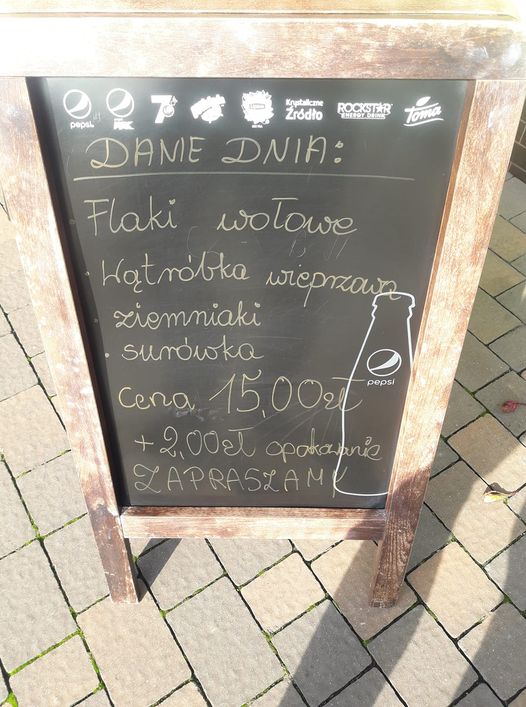 pepsi pepsi MAX 7up Mirinda Lipton Krystaliczne Źródło ROCKSTAR ENERGY DRINK Toma
DANIE DNIA:
Flaki wołowe
• Wątróbka wieprzowa
ziemniaki
• surówka
cena 15,00zł
pepsi
+ 2,00zł opakowanie
ZAPRASZAMY